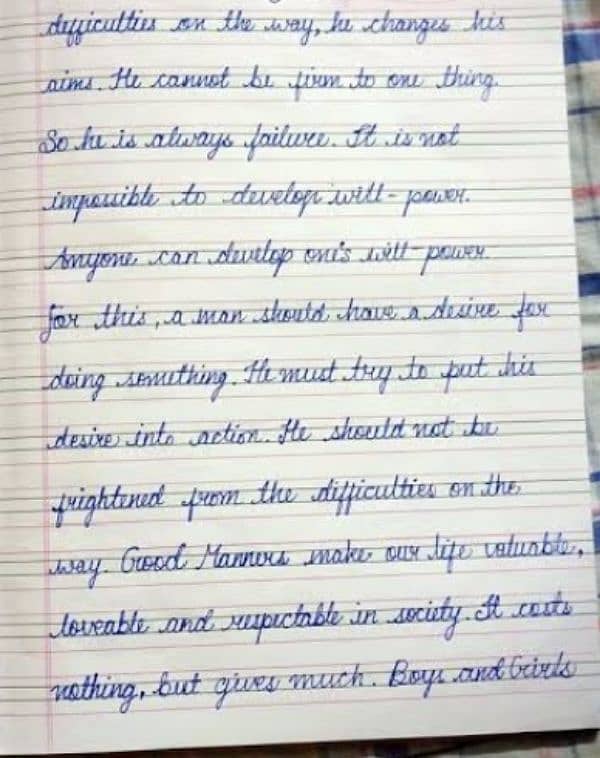 difficulties on the way, he changes his
aims. He cannot be firm to one thing.
So he is always failure. It is not
impossible to develop will-power.
Anyone can develop one's will-power.
For this, a man should have a desire for
doing something. He must try to put his
desire into action. He should not be
frightened from the difficulties on the
way. Good Manners make our life valuable,
loveable and respectable in society. It costs
nothing, but gives much. Boys and Girls